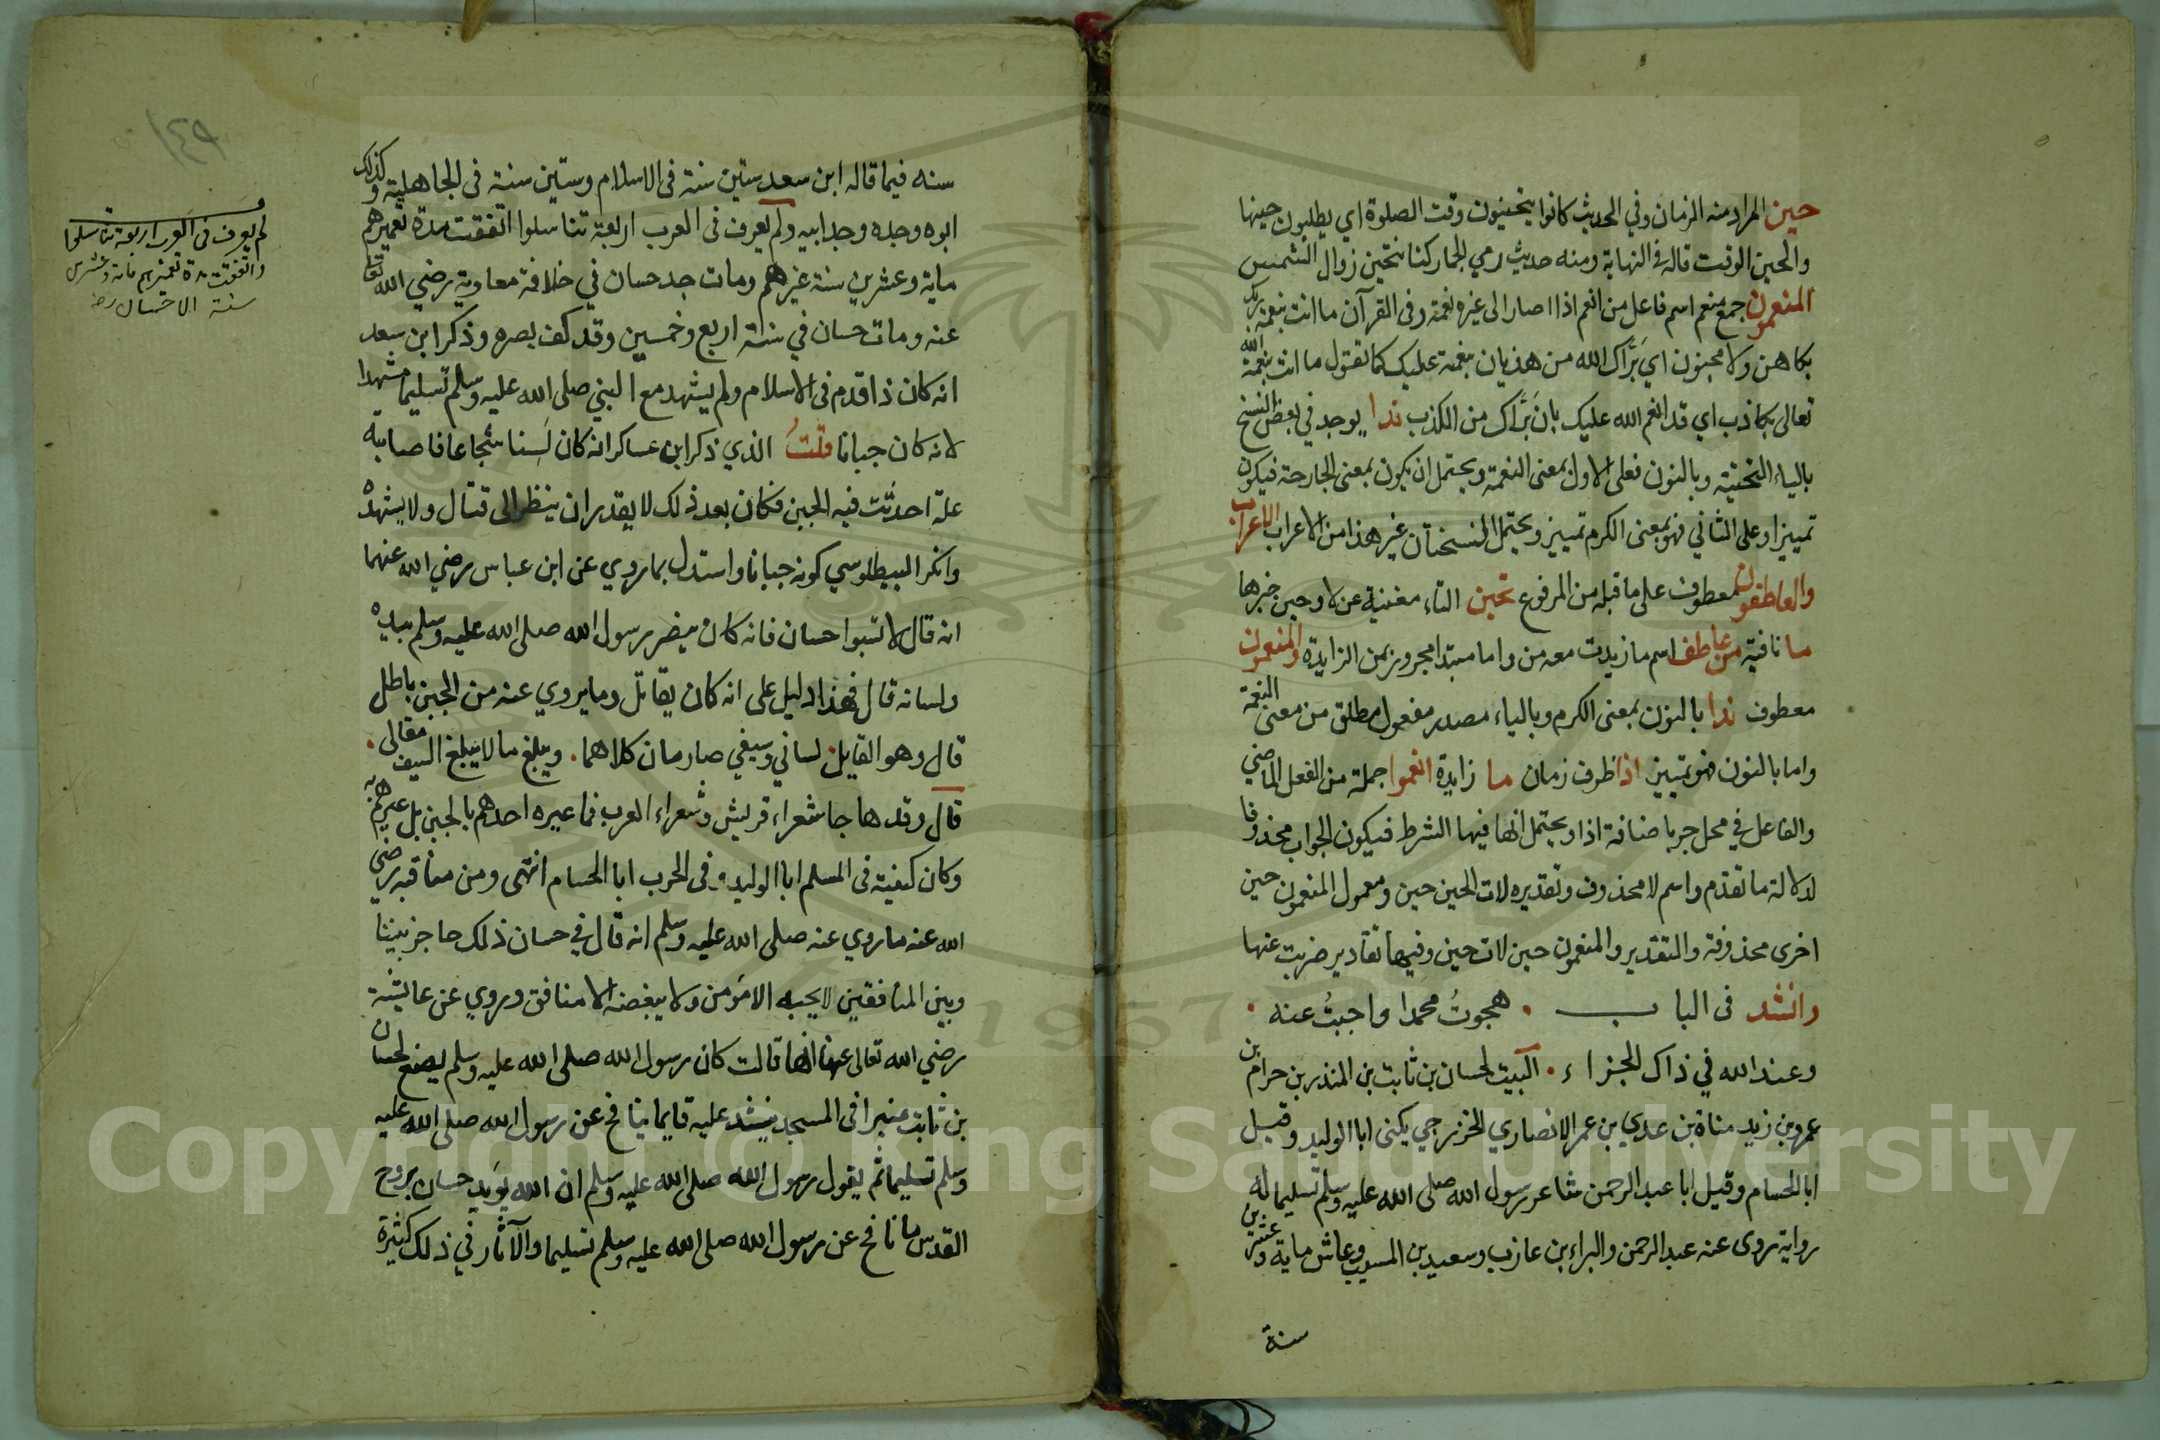 حين المراد منه الزمان وفي الحديث كانوا يتحينون وقت الصلوة اي يطلبون حينها
والحين الوقت قاله في النهاية ومنه حديث رمي الجمار كنا نتحين زوال الشمس
المنعمون جمع منعم اسم فاعل من انعم اذا اصار الى غيره نعمة وفي القرآن ما انت بنعمة ربك
بكاهن ولا مجنون اي برّاك الله من هذيان بنعمة عليك كما تقول ما انت بنعمة الله
تعالى بكاذب اي قد انعم الله عليك بان برّاك من الكذب ندا يوجد في بعض النسخ
بالياء التحتية وبالنون فعلى الاول بمعنى النعمة ويحتمل ان يكون بمعنى الجارحة فيكون
تمييزا وعلى الثاني فهو بمعنى الكرم تمييز ويحتمل النسختان غير هذا من الاعراب الاعراب
والعاطفون معطوف على ما قبله من المرفوع تحين التاء مغنية عن لا وحين خبرها
ما نافية من عاطف اسم ما زيدت معه من واما مبتدا مجرور بمن الزايدة والمنعمون
معطوف ندا بالنون بمعنى الكرم وبالياء مصدر مفعول مطلق من معنى النعمة
واما بالنون فهو تمييز اذا ظرف زمان ما زايدة انعموا جملة من الفعل الماضي
والفاعل في محل جر باضافة اذا ويحتمل انها فيها الشرط فيكون الجواب محذوفا
لدلالة ما تقدم واسم لا محذوف وتقديره لات الحين حين ومعمول المنعمون حين
اخرى محذوفة والتقدير والمنعمون حين لات حين وفيها تقادير ضربت عنها
وانشد في الباب هجوتُ محمدا واجبتُ عنه
وعند الله في ذاك الجزاء البيت لحسان بن ثابت بن المنذر بن حرام بن
عمرو بن زيد مناة بن عدي بن عمر الانصاري الخزرجي يكنى ابا الوليد وقيل
ابا الحسام وقيل ابا عبد الرحمن شاعر رسول الله صلى الله عليه وسلم تسليما له
رواية روى عنه عبد الرحمن والبراء بن عازب وسعيد بن المسيب وعاش ماية وعشرين
سنة
سنه فيما قاله ابن سعد ستين سنة في الاسلام وستين سنة في الجاهلية وكذلك
ابوه وجده وجد ابيه ولم يعرف في العرب اربعة تناسلوا اتفقت مدة تعميرهم
ماية وعشرين سنة غيرهم ومات جد حسان في خلافة معاوية رضي الله تعا
عنه ومات حسان في سنة اربع وخمسين وقد كف بصره وذكر ابن سعد
انه كان ذا قدم في الاسلام ولم يشهد مع النبي صلى الله عليه وسلم تسليما مشهدا
لانه كان جبانا قلتُ الذي ذكر ابن عساكر انه كان لَسِنا شجاعا فاصابته
علة احدثت فيه الجبن فكان بعد ذلك لا يقدر ان ينظر الى قتال ولا يشهده
وانكر البيطلوسي كونه جبانا واستدل بما روي عن ابن عباس رضي الله عنهما
انه قال لا تسبوا حسان فانه كان ينصر رسول الله صلى الله عليه وسلم بيده
ولسانه قال فهذا دليل على انه كان يقاتل وما يروي عنه من الجبن باطل
قال وهو القايل لساني وسيفي صارمان كلاهما ويبلغ ما لا يبلغ السيف مقالي
قال وقد هاجا شعراء قريش وشعراء العرب فما عيره احدهم بالجبن بل عيرهم به
وكان كنيته في المسلم ابا الوليد وفي الحرب ابا الحسام انتهى ومن مناقبه رضي
الله عنه ما روي عنه صلى الله عليه وسلم انه قال في حسان ذلك حاجز بيننا
وبين المنافقين لا يحبه الا مؤمن ولا يبغضه الا منافق وروي عن عايشة
رضي الله تعالى عنها انها قالت كان رسول الله صلى الله عليه وسلم يضع لحسان
بن ثابت منبرا في المسجد ينشد عليه قايما ينافح عن رسول الله صلى الله عليه
وسلم تسليما ثم يقول رسول الله صلى الله عليه وسلم ان الله يؤيد حسان بروح
القدس ما نافح عن رسول الله صلى الله عليه وسلم تسليما والآثار في ذلك كثيرة
١٤٩
لم يعرف في العرب اربعة تناسلوا
واتفقت مدة تعميرهم ماية وعشرين
سنة الا حسان رضي
Copyright © King Saud University
1957